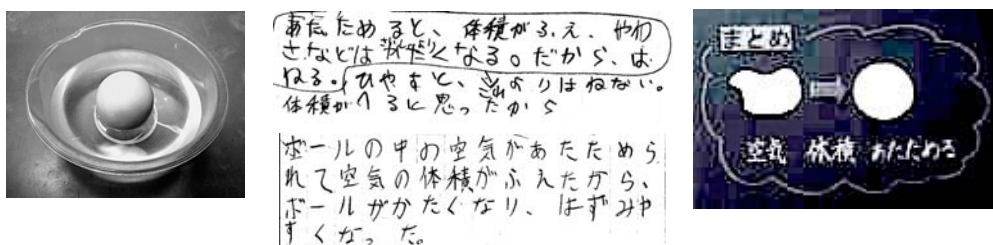 あたためると、体積がふえ、やわ
さなどは なる。だから、は
ねる。ひやすと、 よりはねない。
体積がへると思ったから
ボールの中の空気があたためら
れて空気の体積がふえたから、
ボールがかたくなり、はずみや
すくなった。
まとめ
空気 体積 あたためる